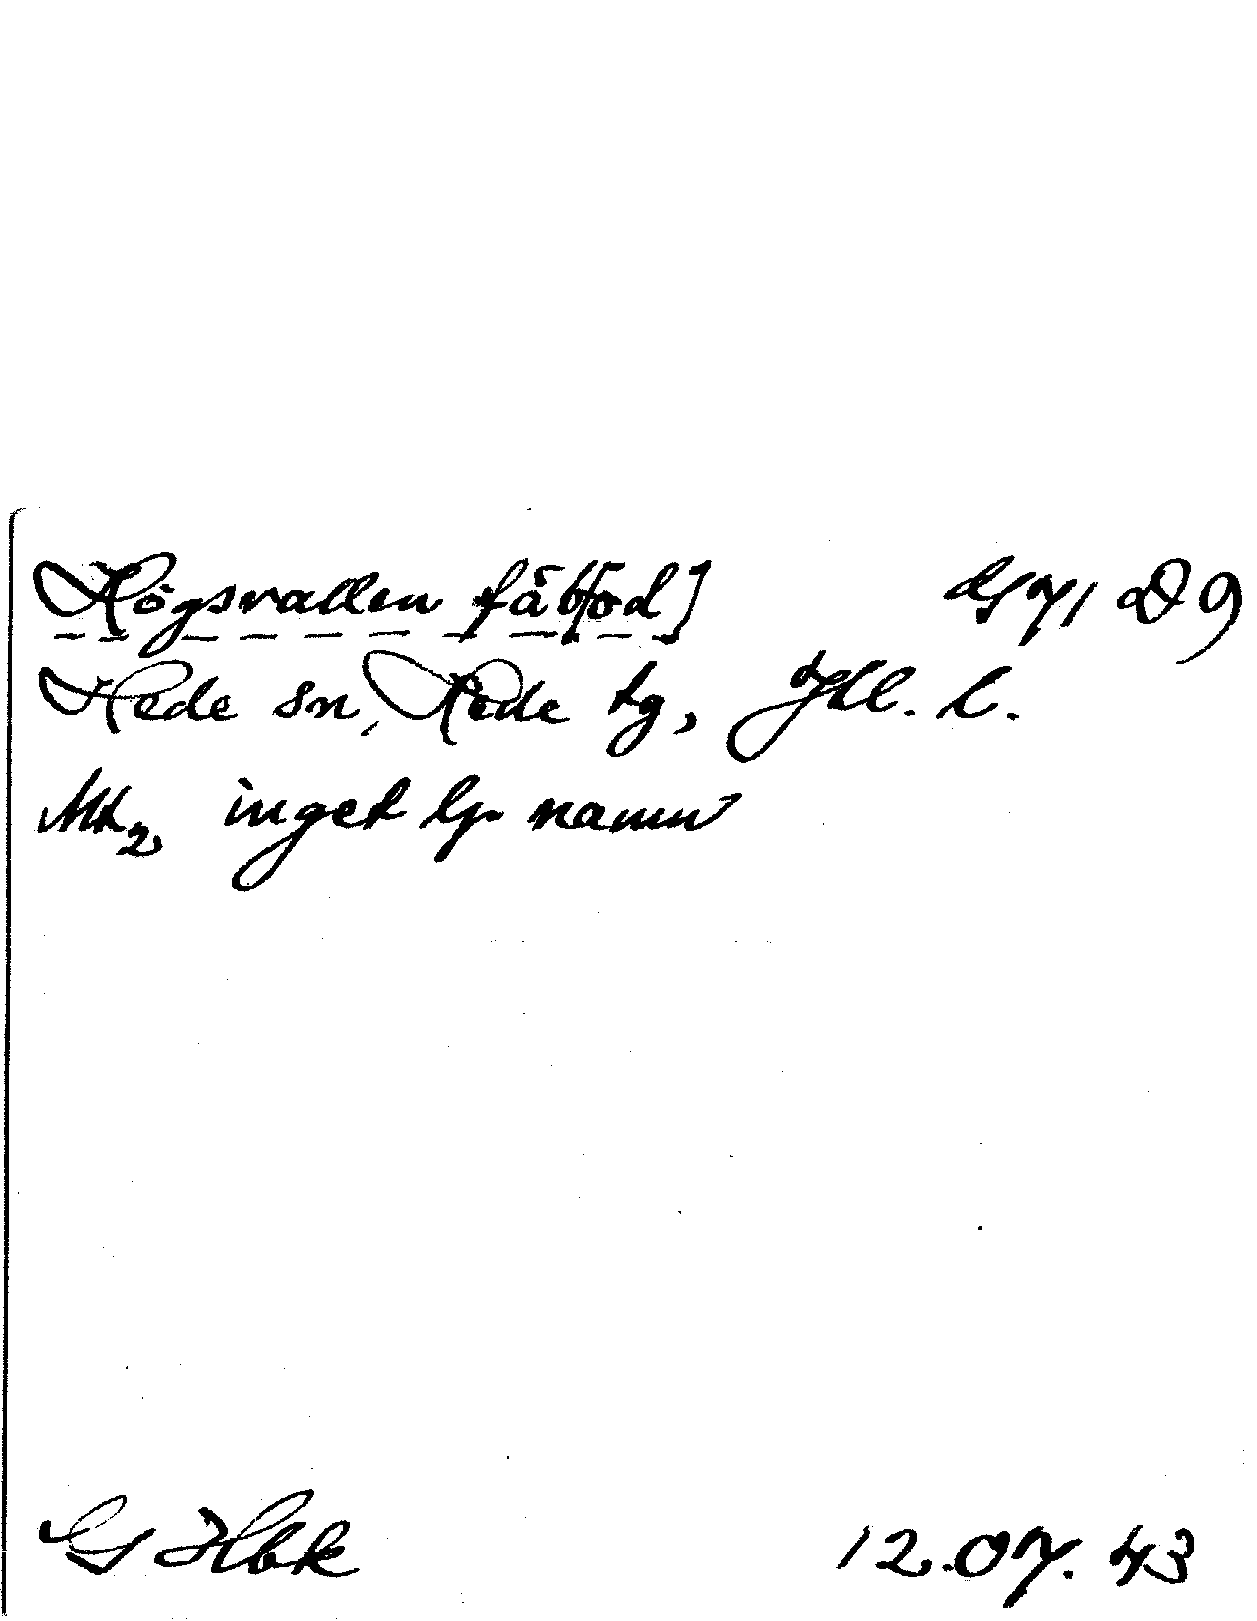 Högsvallen fäb[od] G 71 D 9
Hede sn, Hede tg, Jtl. l.
Mt2 inget lp. namn
G Hbk 12.07.43